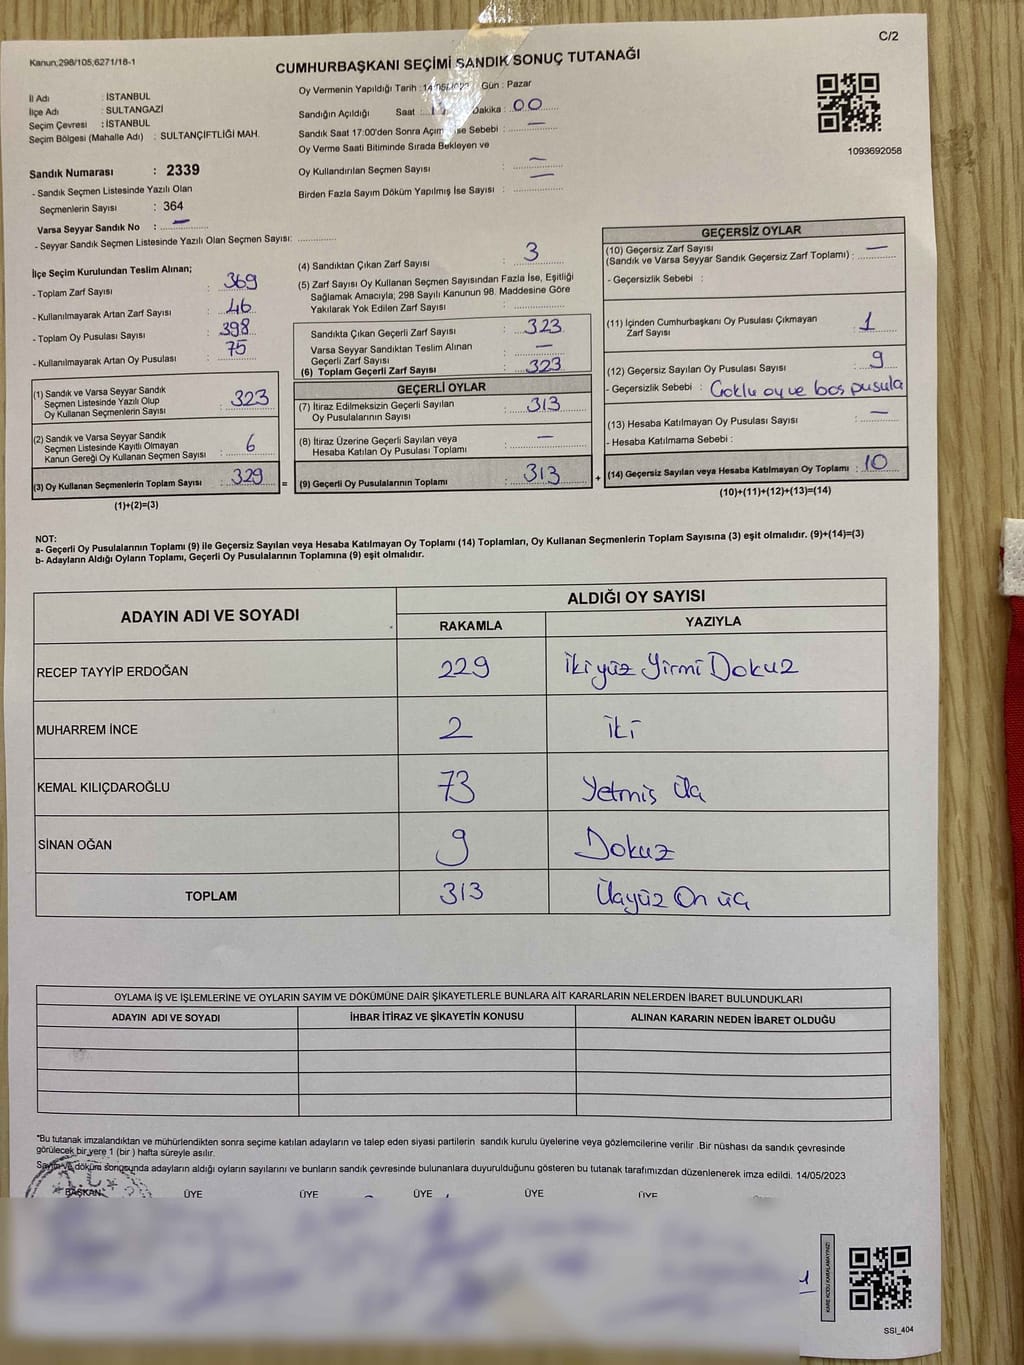 C/2
Kanun;298/105;6271/18-1
CUMHURBAŞKANI SEÇİMİ SANDIK SONUÇ TUTANAĞI
İl Adı : İSTANBUL
İlçe Adı : SULTANGAZİ
Seçim Çevresi : İSTANBUL
Seçim Bölgesi (Mahalle Adı) : SULTANÇİFTLİĞİ MAH.
Sandık Numarası : 2339
- Sandık Seçmen Listesinde Yazılı Olan
Seçmenlerin Sayısı : 364
Varsa Seyyar Sandık No : —
- Seyyar Sandık Seçmen Listesinde Yazılı Olan Seçmen Sayısı: ..............
Oy Vermenin Yapıldığı Tarih : Gün : Pazar
Sandığın Açıldığı Saat : Dakika : 00
Sandık Saat 17:00'den Sonra Açım Sebebi : —
Oy Verme Saati Bitiminde Sırada Bekleyen ve
Oy Kullandırılan Seçmen Sayısı : —
Birden Fazla Sayım Döküm Yapılmış İse Sayısı : —
1093692058
İlçe Seçim Kurulundan Teslim Alınan;
- Toplam Zarf Sayısı : 369
- Kullanılmayarak Artan Zarf Sayısı : 46
- Toplam Oy Pusulası Sayısı : 398
- Kullanılmayarak Artan Oy Pusulası : 75
(1) Sandık ve Varsa Seyyar Sandık
Seçmen Listesinde Yazılı Olup
Oy Kullanan Seçmenlerin Sayısı : 323
(2) Sandık ve Varsa Seyyar Sandık
Seçmen Listesinde Kayıtlı Olmayan
Kanun Gereği Oy Kullanan Seçmen Sayısı : 6
(3) Oy Kullanan Seçmenlerin Toplam Sayısı : 329
(1)+(2)=(3)
=
(4) Sandıktan Çıkan Zarf Sayısı : 3
(5) Zarf Sayısı Oy Kullanan Seçmen Sayısından Fazla İse, Eşitliği
Sağlamak Amacıyla; 298 Sayılı Kanunun 98. Maddesine Göre
Yakılarak Yok Edilen Zarf Sayısı :
Sandıkta Çıkan Geçerli Zarf Sayısı : 323
Varsa Seyyar Sandıktan Teslim Alınan
Geçerli Zarf Sayısı : —
(6) Toplam Geçerli Zarf Sayısı : 323
GEÇERLİ OYLAR
(7) İtiraz Edilmeksizin Geçerli Sayılan
Oy Pusulalarının Sayısı : 313
(8) İtiraz Üzerine Geçerli Sayılan veya
Hesaba Katılan Oy Pusulası Toplamı : —
(9) Geçerli Oy Pusulalarının Toplamı : 313
+
GEÇERSİZ OYLAR
(10) Geçersiz Zarf Sayısı
(Sandık ve Varsa Seyyar Sandık Geçersiz Zarf Toplamı) : —
- Geçersizlik Sebebi :
(11) İçinden Cumhurbaşkanı Oy Pusulası Çıkmayan
Zarf Sayısı : 1
(12) Geçersiz Sayılan Oy Pusulası Sayısı : 9
- Geçersizlik Sebebi : Çoklu oy ve boş pusula
(13) Hesaba Katılmayan Oy Pusulası Sayısı : —
- Hesaba Katılmama Sebebi :
(14) Geçersiz Sayılan veya Hesaba Katılmayan Oy Toplamı : 10
(10)+(11)+(12)+(13)=(14)
NOT:
a- Geçerli Oy Pusulalarının Toplamı (9) ile Geçersiz Sayılan veya Hesaba Katılmayan Oy Toplamı (14) Toplamları, Oy Kullanan Seçmenlerin Toplam Sayısına (3) eşit olmalıdır. (9)+(14)=(3)
b- Adayların Aldığı Oyların Toplamı, Geçerli Oy Pusulalarının Toplamına (9) eşit olmalıdır.
ADAYIN ADI VE SOYADI
ALDIĞI OY SAYISI
RAKAMLA YAZIYLA
RECEP TAYYİP ERDOĞAN 229 İkiyüz Yirmi Dokuz
MUHARREM İNCE 2 İki
KEMAL KILIÇDAROĞLU 73 Yetmiş üç
SİNAN OĞAN 9 Dokuz
TOPLAM 313 Üçyüz On üç
OYLAMA İŞ VE İŞLEMLERİNE VE OYLARIN SAYIM VE DÖKÜMÜNE DAİR ŞİKAYETLERLE BUNLARA AİT KARARLARIN NELERDEN İBARET BULUNDUKLARI
ADAYIN ADI VE SOYADI İHBAR İTİRAZ VE ŞİKAYETİN KONUSU ALINAN KARARIN NEDEN İBARET OLDUĞU
"Bu tutanak imzalandıktan ve mühürlendikten sonra seçime katılan adayların ve talep eden siyasi partilerin sandık kurulu üyelerine veya gözlemcilerine verilir .Bir nüshası da sandık çevresinde
görülecek bir yere 1 (bir ) hafta süreyle asılır.
Sayım ve döküm sonucunda adayların aldığı oyların sayılarını ve bunların sandık çevresinde bulunanlara duyurulduğunu gösteren bu tutanak tarafımızdan düzenlenerek imza edildi. 14/05/2023
BAŞKAN ÜYE ÜYE ÜYE ÜYE ÜYE
T.C.
KARE KODU KARALAMAYINIZ!
SSI_404